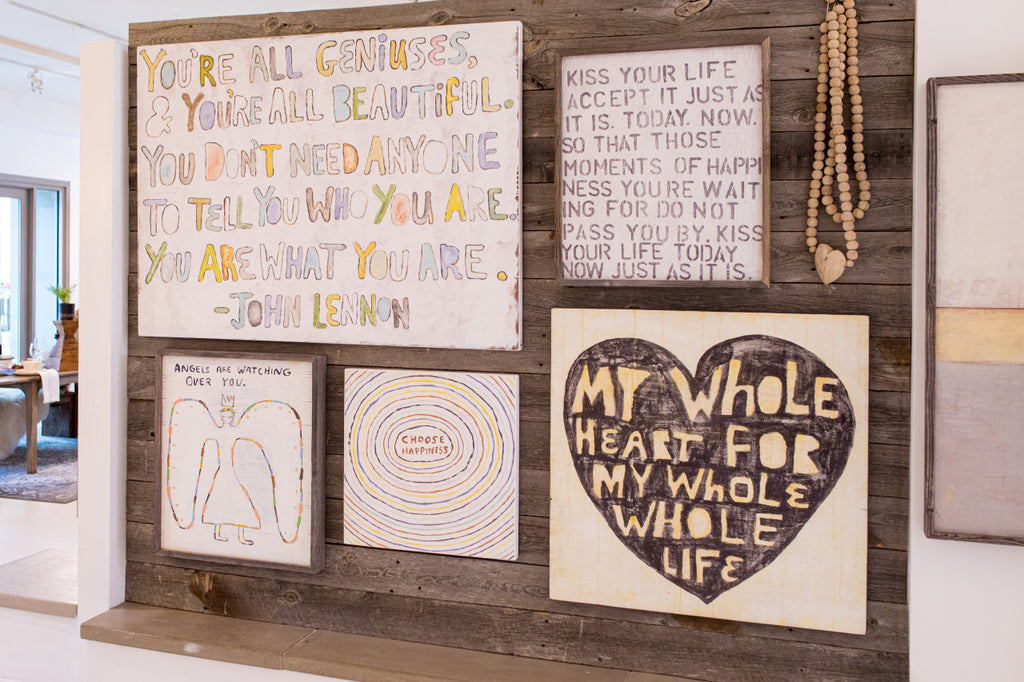 YOU'RE ALL GENiUSES,
& YOU'RE ALL BEAUTiFUL.
YOU DON'T NEED ANYONE
TO TELL YOU WHO YOU ARE.
YOU ARE WHAT YOU ARE.
-JOHN LENNON
KISS YOUR LIFE
ACCEPT IT JUST AS
IT IS. TODAY. NOW.
SO THAT THOSE
MOMENTS OF HAPPI
NESS YOU'RE WAIT
ING FOR DO NOT
PASS YOU BY. KISS
YOUR LIFE TODAY
NOW JUST AS IT IS.
ANGELS ARE WATCHING
OVER YOU.
CHOOSE
HAPPINESS
MY WHOLE
HEART FOR
MY WHOLE
WHOLE
LIFE